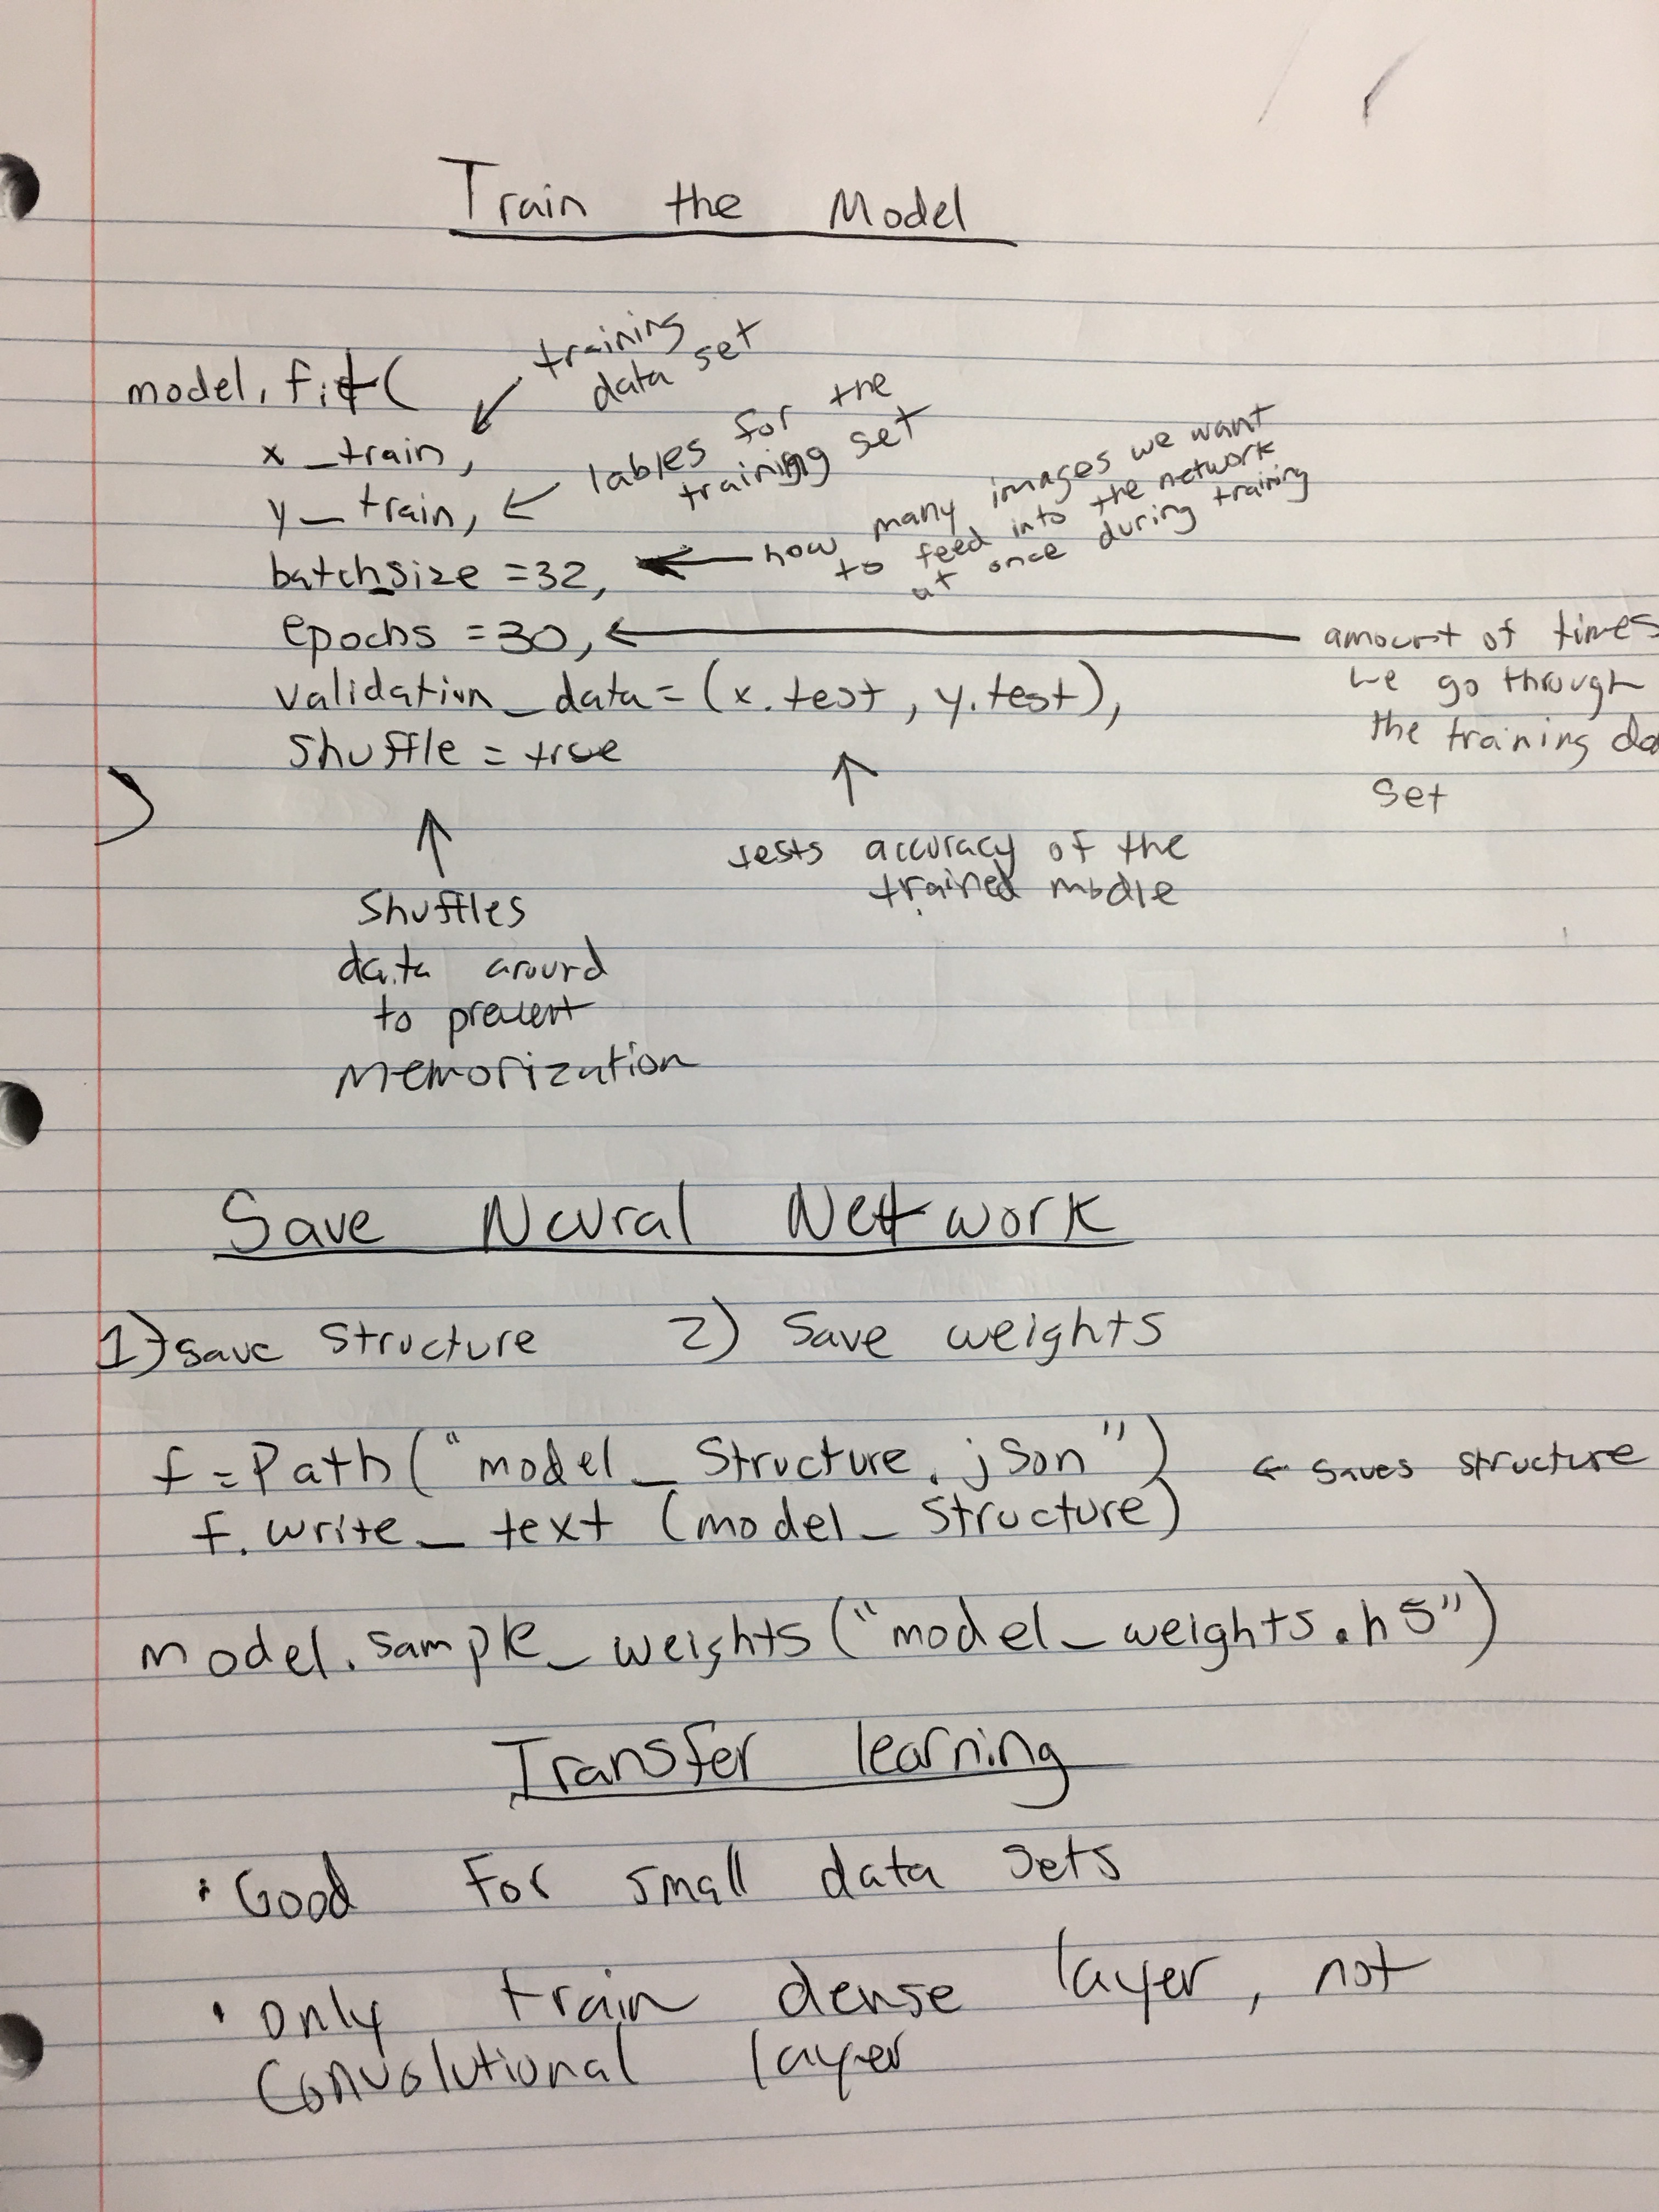 Train the Model
model.fit(
training
data set
x_train,
lables for the
training set
y_train,
how many images we want
to feed into the network
at once during training
batch_size =32,
epochs =30,
amount of times
we go through
the training da
set
validation_data=(x.test, y.test),
shuffle = true
)
tests accuracy of the
trained modle
Shuffles
data around
to prevent
memorization
Save Neural Network
1) save structure 2) Save weights
f=Path("model_structure.json")
← saves structure
f.write_text (model_structure)
model.sample_weights("model_weights.h5")
Transfer learning
• Good For small data sets
• only train dense layer, not
Convolutional layer